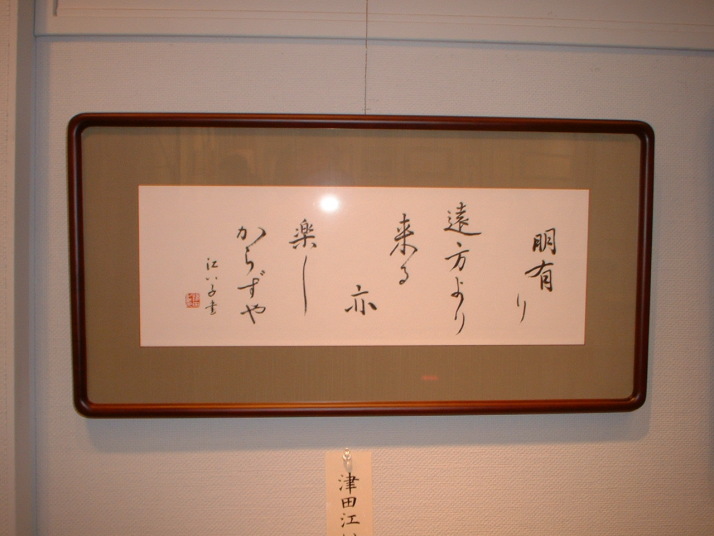 朋有り
遠方より
来る
亦
楽し
からずや
江い子書
津田江